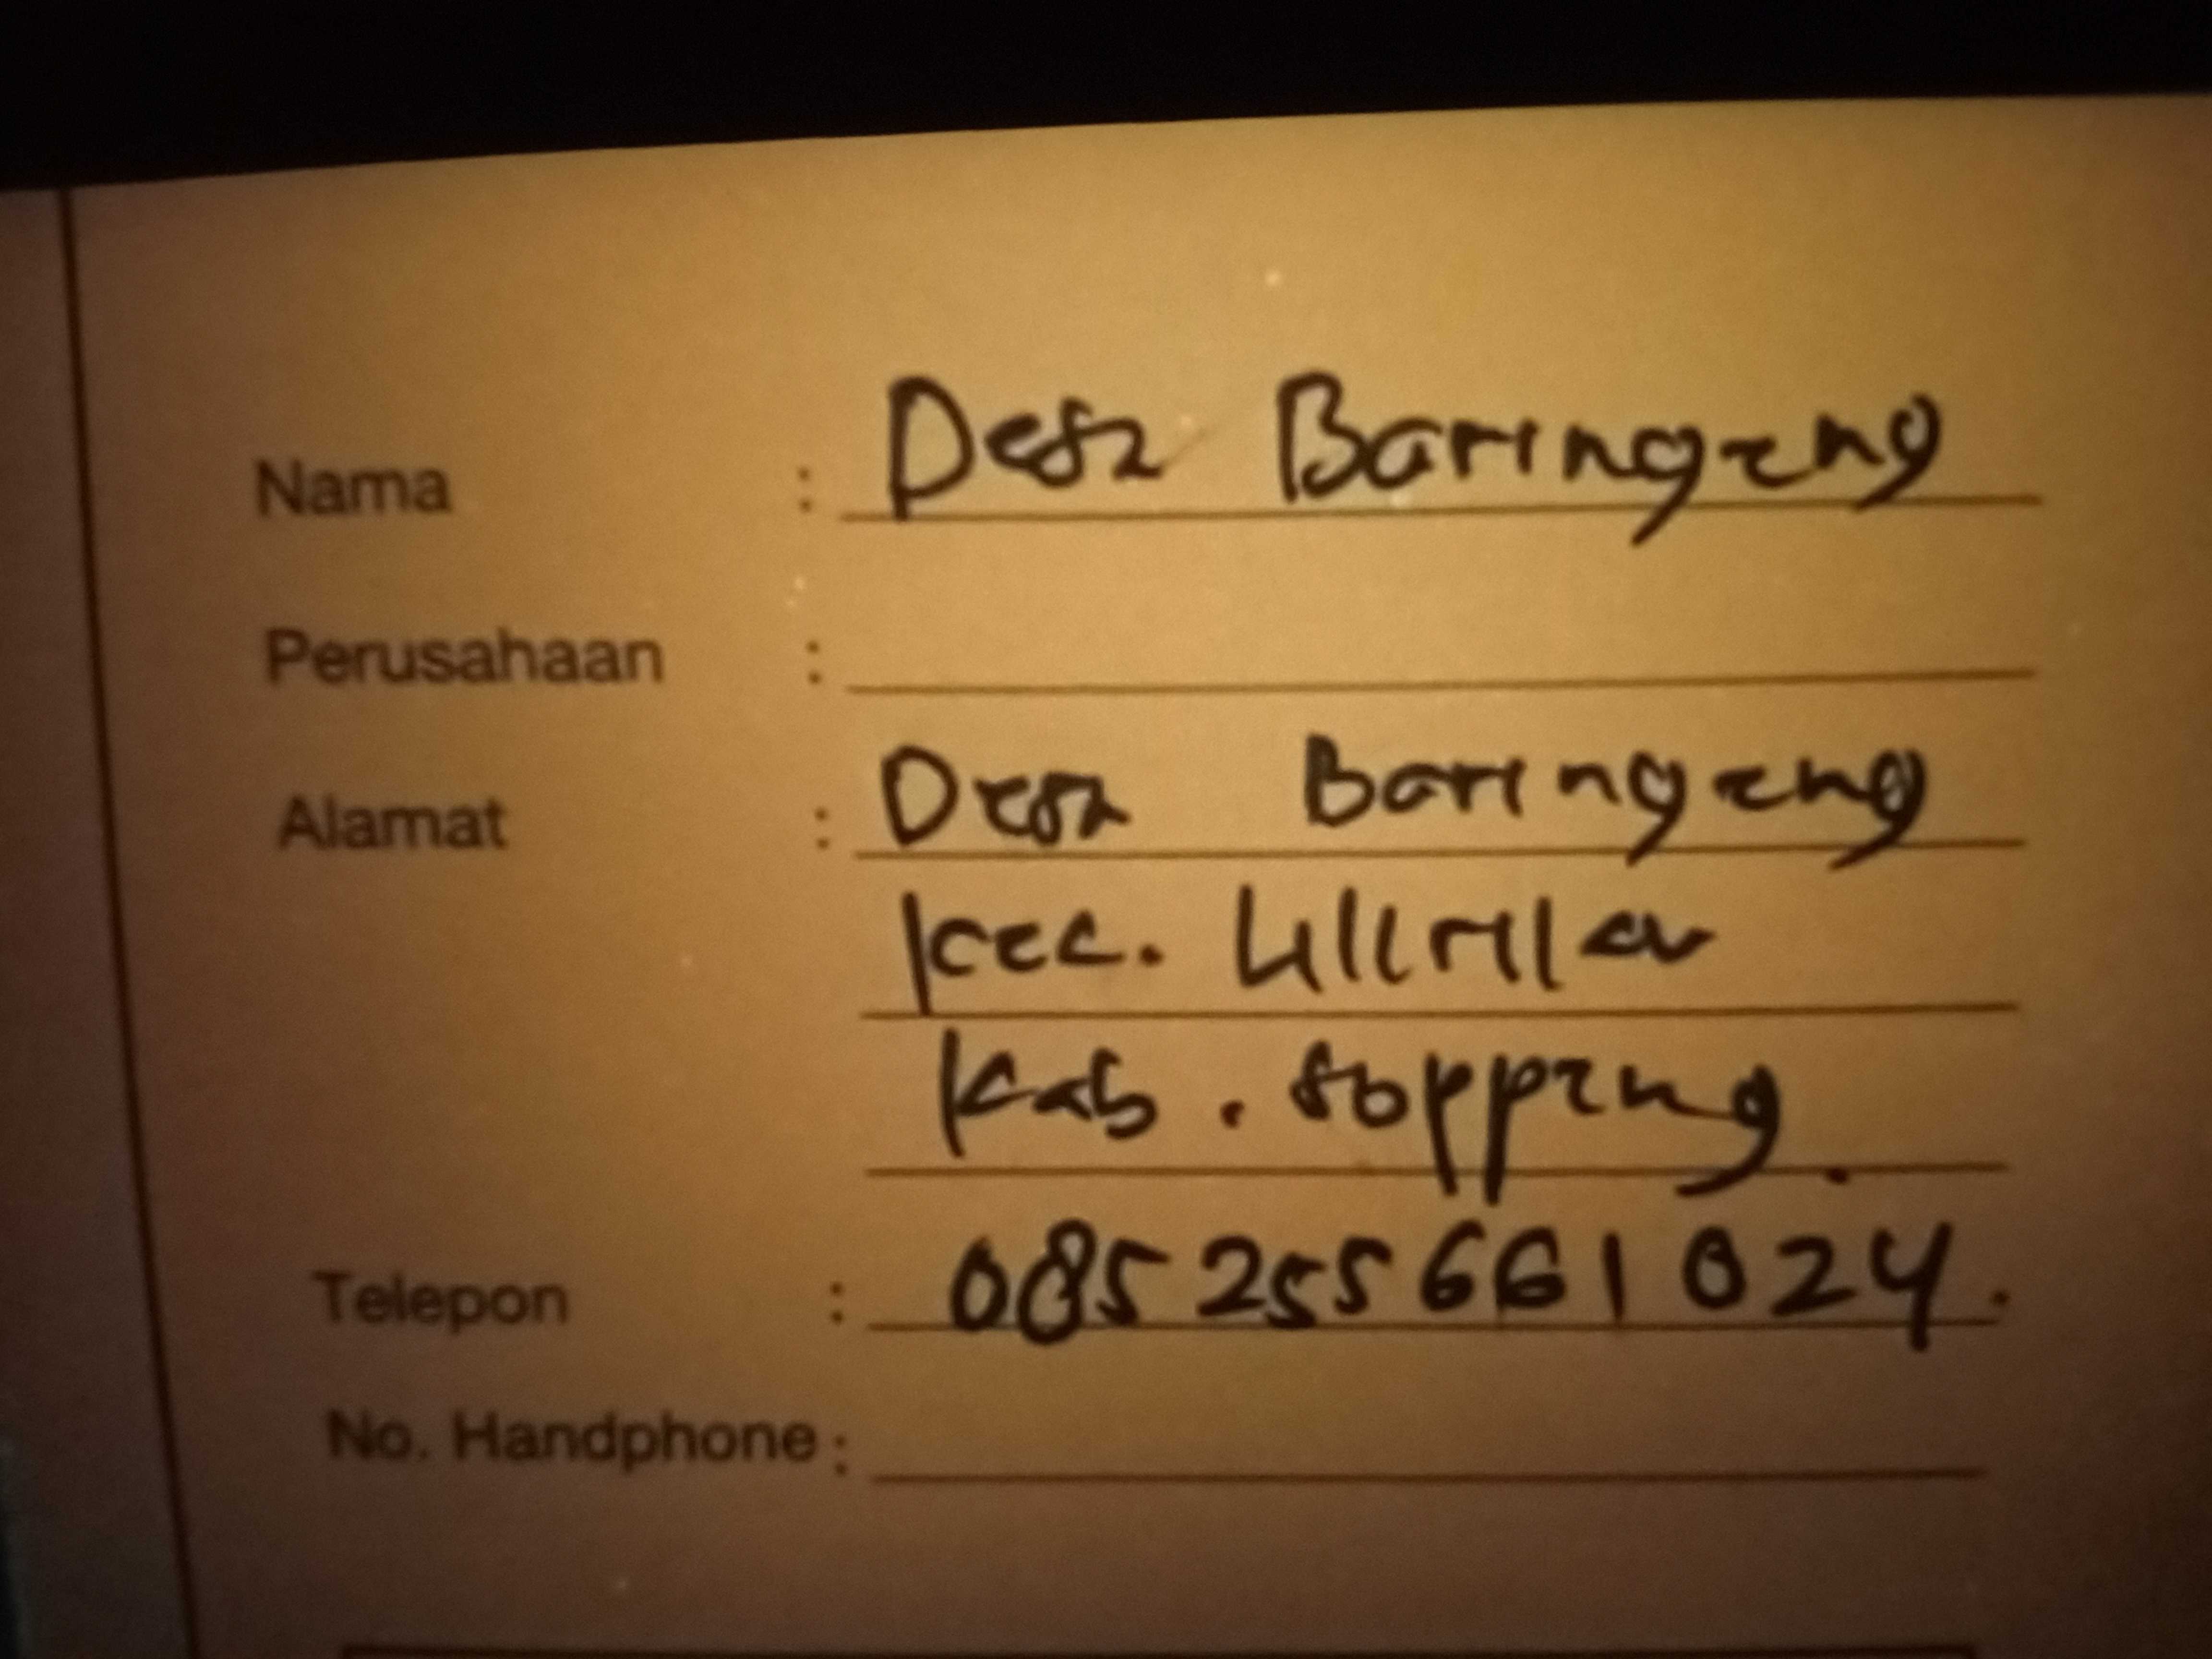 Nama : Desa Baringeng
Perusahaan :
Alamat : Desa Baringeng
Kec. Lilirilau
Kab. Soppeng.
Telepon : 085 255 661 024.
No. Handphone :